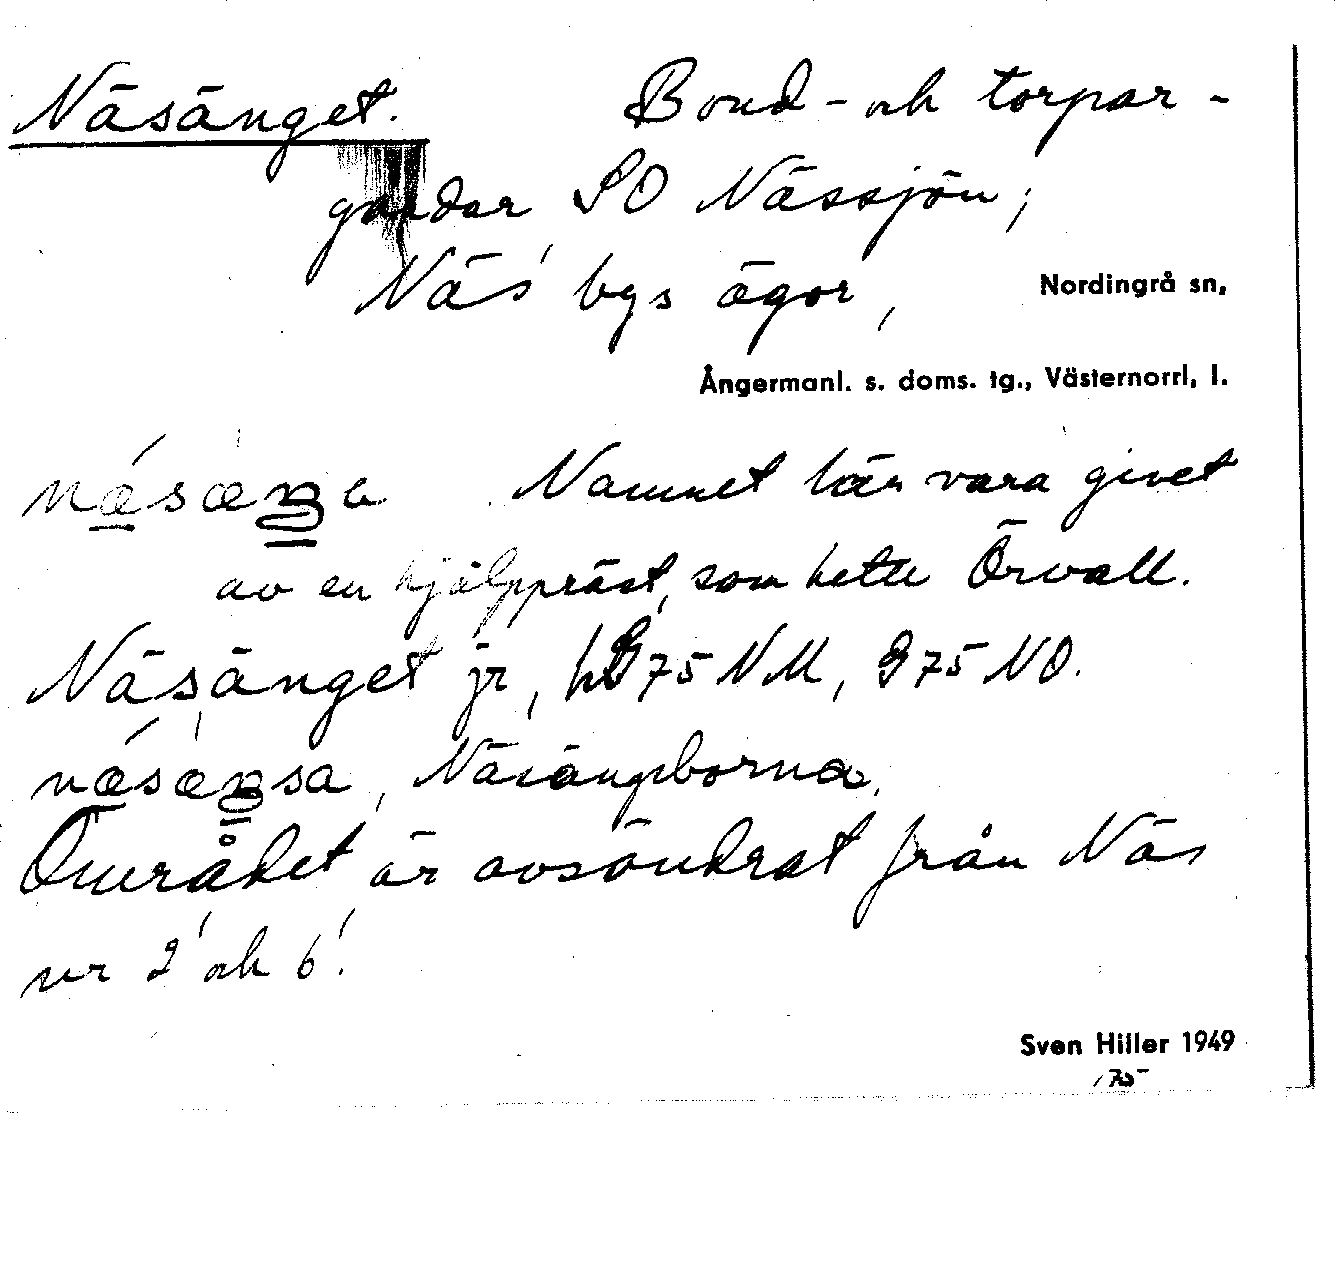 Näsänget. Bond- och torpar-
gårdar SO Nässjön;
Näs' bys ägor,
Nordingrå sn,
Ångermanl. s. doms. tg., Västernorrl, l.
Namnet lär vara givet
av en hjälppräst, som hette Örvall.
Näsänget jr, 75 NM, 975 NO.
Näsängsborna.
Området är avsöndrat från Näs
nr 2' och 6'.
Sven Hiller 1949